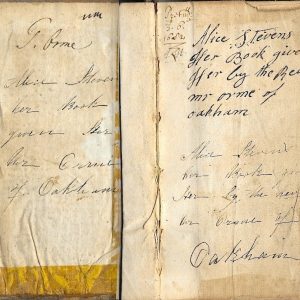 T. Orme
Alice Steven
her Book
given Her
Mr Orme
of Oakham
Alice Stevens
Her Book give
Her by the Re
mr orme of
oakham
Alice Steven
her Book
Her by the
Mr Orme of
Oakham